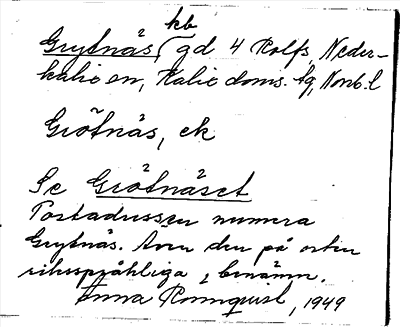 kb
Grytnäs, gd 4 Rolfs, Neder-
kalix sn, Kalix doms. tg, Norrb. l
Grötnäs, ek
Se Grötnäset
Postadressen numera
Grytnäs. Även den på orten
riksspråkliga benämn.
Anna Rönnquist, 1949